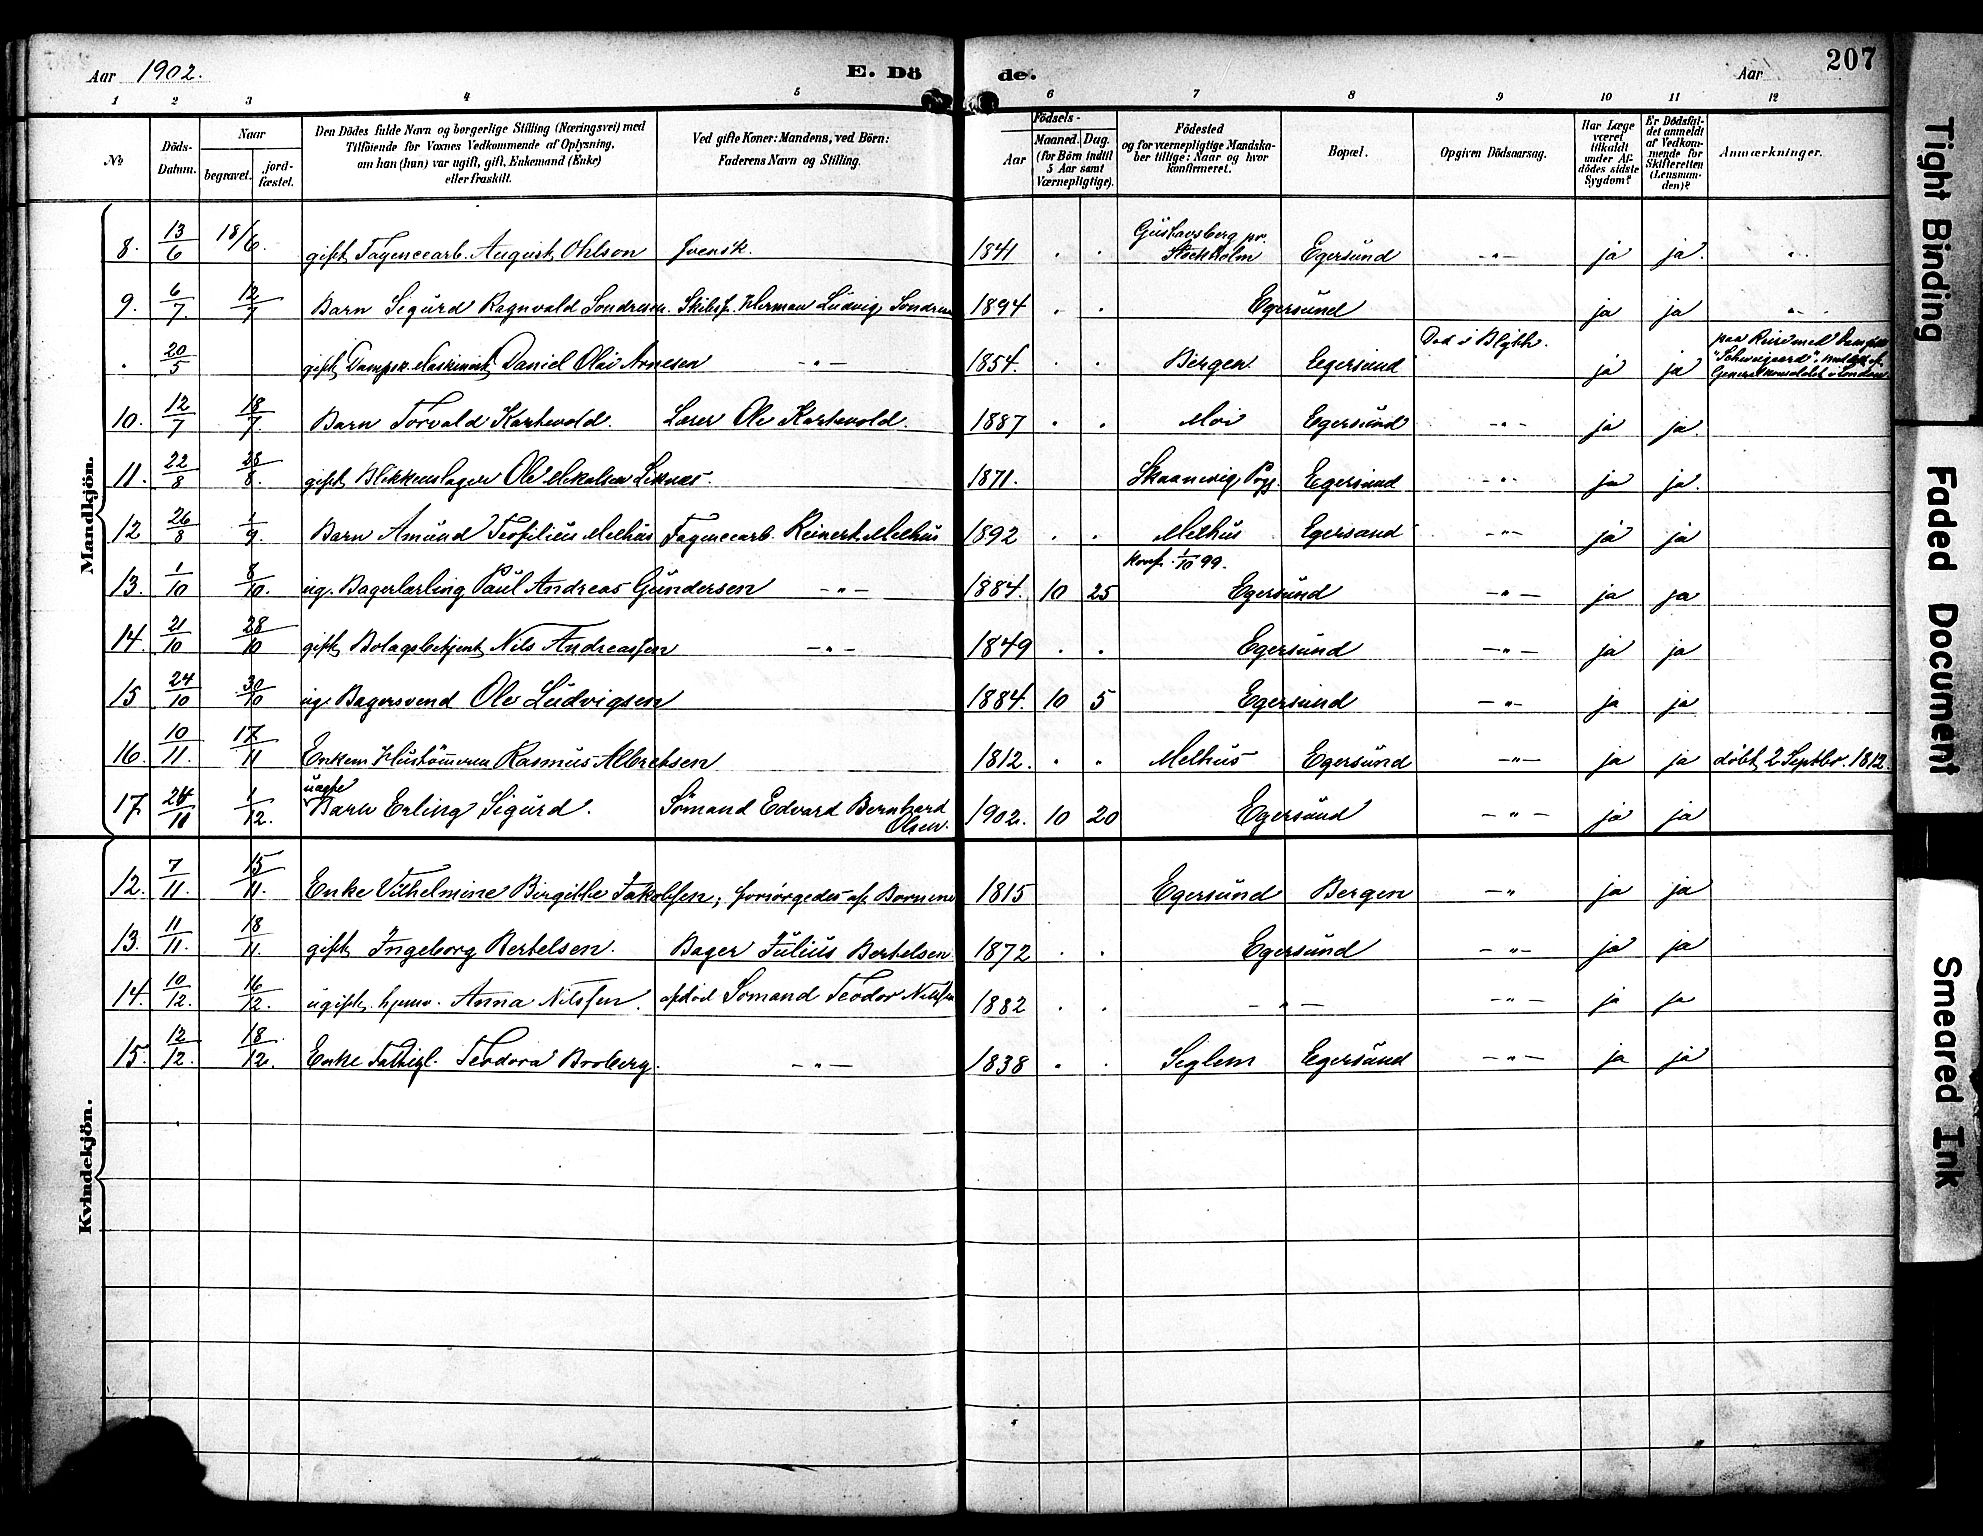 Aar 1902.
E. Dö
de.
Aar
207
1 2 3 4 5 6 7 8 9 10 11 12
№
Döds-
Datum.
Naar
begravet.
jord-
fæstet.
Den Dödes fulde Navn og borgerlige Stilling (Næringsvei) med
Tilföiende for Voxnes Vedkommende af Oplysning,
om han (hun) var ugift, gift, Enkemand (Enke)
eller fraskilt.
Ved gifte Koner: Mandens, ved Börn:
Faderens Navn og Stilling.
Födsels-
Aar
Maaned. Dag.
(for Börn indtil
5 Aar samt
Værnepligtige).
Födested
og for værnepligtige Mandska-
ber tillige: Naar og hvor
konfirmeret.
Bopæl.
Opgiven Dödsaarsag.
Har Læge
været
tilkaldt
under Af-
dödes sidste
Sygdom?
Er Dödsfal-
det anmeldt
af Vedkom-
mende for
Skifteretten
(Lensman-
den)?
Anmærkninger.
Mandkjön.
8. 13/6 18/6. gift Fayencearb. August Ohlson svensk. 1841 . . Gustavsberg pr. Stockholm Egersund -"- ja ja. "
9. 6/7 12/7 Barn Sigurd Ragnvald Sondresen. Skibsf. Herman Ludvig Sondresen 1894 . . Egersund ja ja "
. 20/5 gift Dampsk. Maskinist Daniel Olai Arnesen -"- 1854. . . Bergen Egersund Død i Blyth. ja ja paa Reise med Dampsk. "Schweigaard".
Generalkonsulatet i London
10. 12/7 18/7 Barn Torvald Kartevold. Lærer Ole Kartevold. 1887 . . Moi Egersund -"- ja ja.
11. 22/8 28/8. gift Blikkenslager Ole Mikalsen Liknæs. 1871. Skaanevig Pgj. Egersund -"- ja ja.
12 26/8 1/9 Barn Amund Teofilius Melhus Fayencearb. Reinert Melhus 1892 . . Melhus Egersund -"- ja ja
13. 1/10 8/10. ug. Bagerlærling Paul Andreas Gundersen -"- 1884. 10 25 konf. 1/10 99. Egersund -"- ja ja
14. 21/10 28/10 gift Bolagsbetjent Nils Andreassen -"- 1849 . . Egersund -"- ja ja
15 24/10 30/10 ug. Bagersvend Ole Ludvigsen 1884. 10 5 Egersund -"- ja ja
16. 10/11. 17/11 Enkem. Hustømmerm. Rasmus Albretsen 1812. " " Melhus Egersund -"- ja ja døbt 2 Septbr. 1812.
17. 24/11 1/12. uægte Barn Erling Sigurd. Sømand Edvard Bernhard Olsen. 1902. 10 20 Egersund -"- ja ja
Kvindekjön.
12. 7/11. 15/11. Enke Vilhelmine Birgitte Jakobsen; forsørgedes af Børnene 1815 Egersund Bergen -" ja ja
13. 11/11. 18/11. gift Ingeborg Bertelsen. Bager Julius Bertelsen. 1872 . . Egersund -"- ja ja
14. 10/12. 16/12. ugift. hjemv. Anna Nilssen. afdød Sømand Teodor Nilssen 1882 . . -"- -"- ja ja
15. 12/12. 18/12. Enke Fattigl. Teodora Broberg. -"- 1838 . . Seglem Egersund -"- ja ja
Tight Binding
Faded Document
Smeared Ink